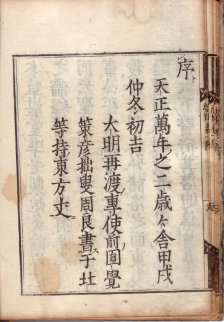 序
天正萬年之二歳々舎甲戌
仲冬初吉
大明再渡專使前圓覺
策彦拙叟周良書于址
等持東方丈